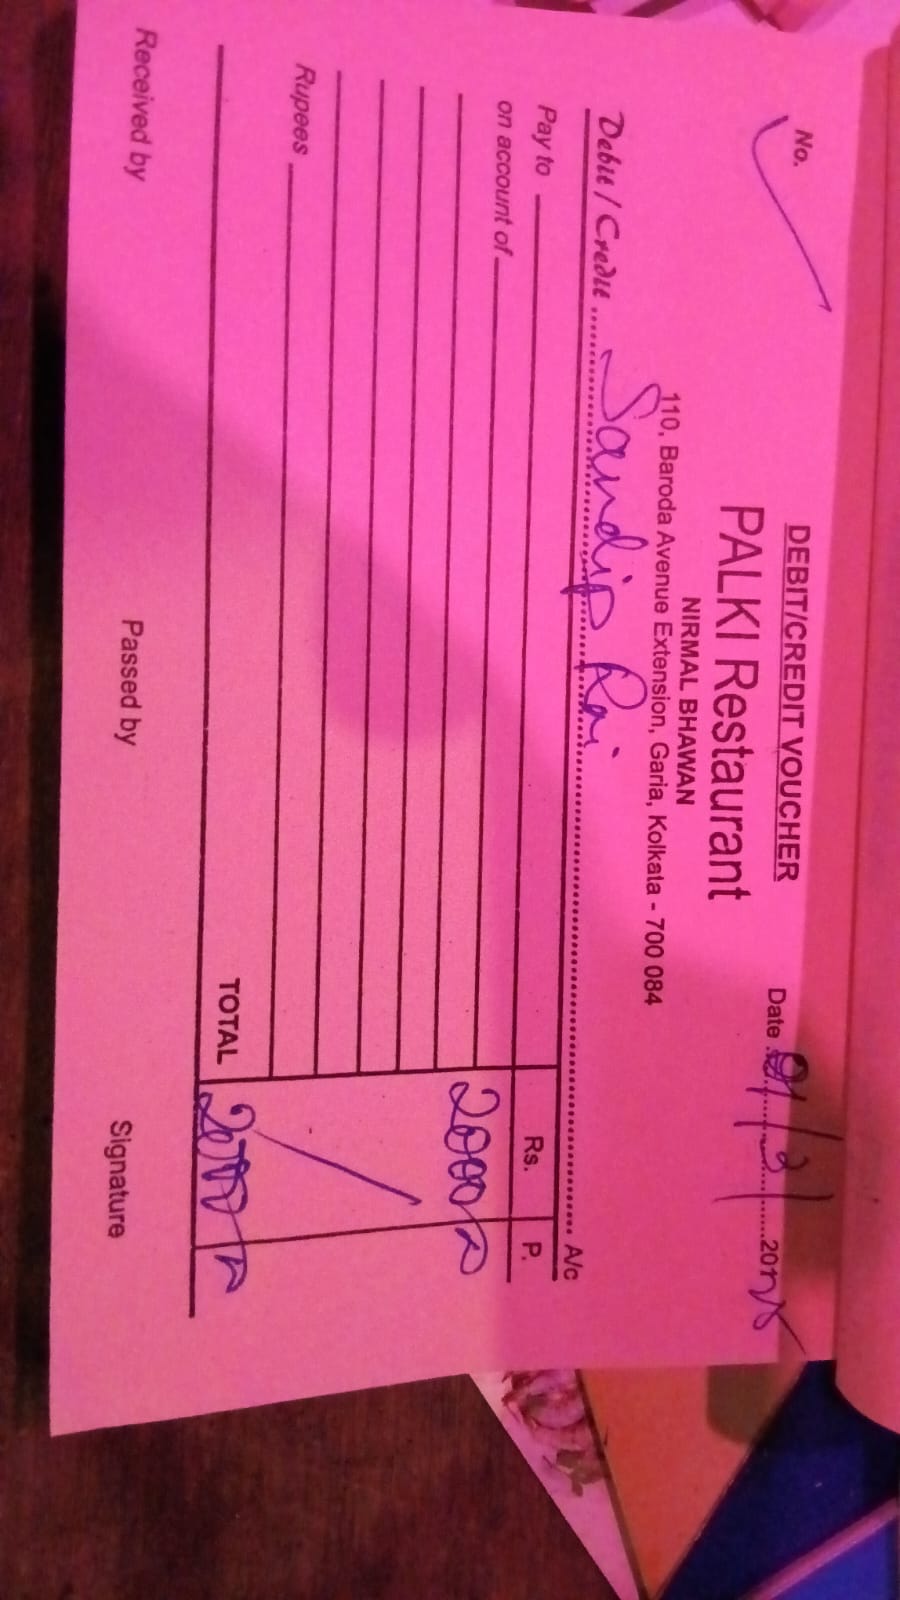 DEBIT/CREDIT VOUCHER
No.
PALKI Restaurant
Date
NIRMAL BHAWAN
110, Baroda Avenue Extension, Garia, Kolkata - 700 084
Debit / Credit Sandip Rai A/c
Pay to
Rs. P.
on account of
2000
Rupees
TOTAL
Received by
Passed by
Signature